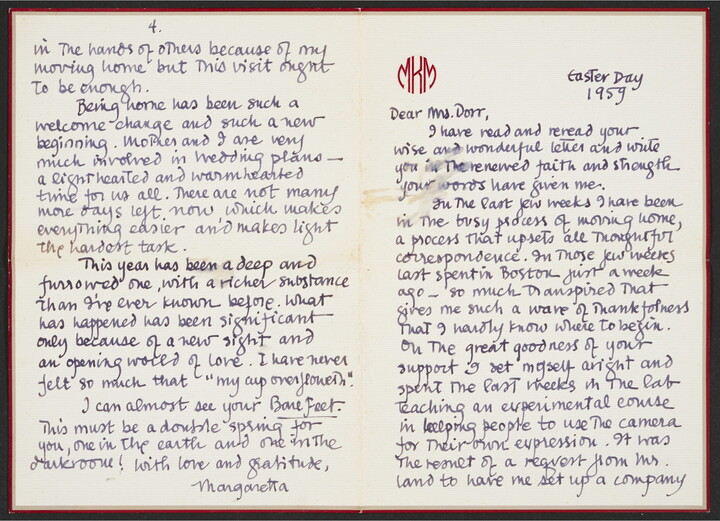 4.
in the hands of others because of my
moving home but this visit ought
to be enough.
Being home has been such a
welcome change and such a new
beginning. Mother and I are very
much involved in wedding plans —
a lighthearted and warmhearted
time for us all. There are not many
more days left now which makes
everything easier and makes light
the hardest task.
This year has been a deep and
furrowed one, with a richer substance
than I've ever known before. What
has happened has been significant
only because of a new sight and
an opening world of love. I have never
felt so much that "my cup overfloweth".
I can almost see your Bare Feet.
This must be a double spring for
you, one in the earth and one in the
darkroom! With love and gratitude,
Margaretta
MKM
Easter Day
1959
Dear Mrs. Dorr,
I have read and reread your
wise and wonderful letter and write
you in the renewed faith and strength
your words have given me.
In the last few weeks I have been
in the busy process of moving home,
a process that upsets all thoughtful
correspondence. In those few weeks
last spent in Boston just a week
ago — so much transpired that
gives me such a wave of thankfulness
that I hardly know where to begin.
On the great goodness of your
support I set myself aright and
spent the last weeks in the lab
teaching an experimental course
in helping people to use the camera
for their own expression. It was
the result of a request from Mr.
Land to have me set up a company